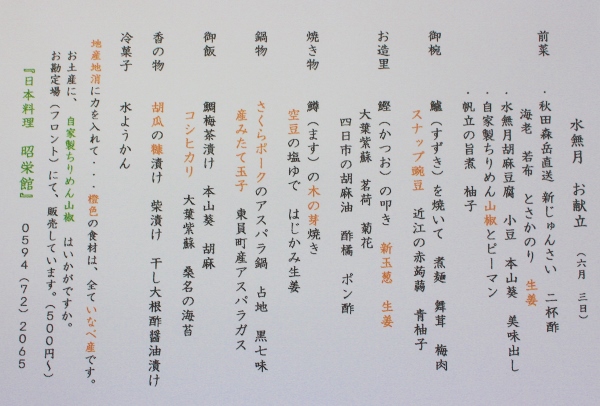 水無月 お献立 (六月 三日)
前菜 ・秋田森岳直送 新じゅんさい 二杯酢
海老 若布 とさかのり 生姜
・水無月胡麻豆腐 小豆 本山葵 美味出し
・自家製ちりめん山椒とピーマン
・帆立の旨煮 柚子
御椀 鱸(すずき)を焼いて 煮麺 舞茸 梅肉
スナップ豌豆 近江の赤蒟蒻 青柚子
お造里 鰹(かつお)の叩き 新玉葱 生姜
大葉紫蘇 茗荷 菊花
四日市の胡麻油 酢橘 ポン酢
焼き物 鱒(ます)の木の芽焼き
空豆の塩ゆで はじかみ生姜
鍋物 さくらポークのアスパラ鍋 占地 黒七味
産みたて玉子 東員町産アスパラガス
御飯 鯛梅茶漬け 本山葵 胡麻
コシヒカリ 大葉紫蘇 桑名の海苔
香の物 胡瓜の糠漬け 柴漬け 干し大根酢醤油漬け
冷菓子 水ようかん
地産地消に力を入れて・・・橙色の食材は、全ていなべ産です。
お土産に、自家製ちりめん山椒 はいかがですか。
お勘定場(フロント)にて、販売しています。(500円~)
『日本料理 昭栄館』 0594(72)2065